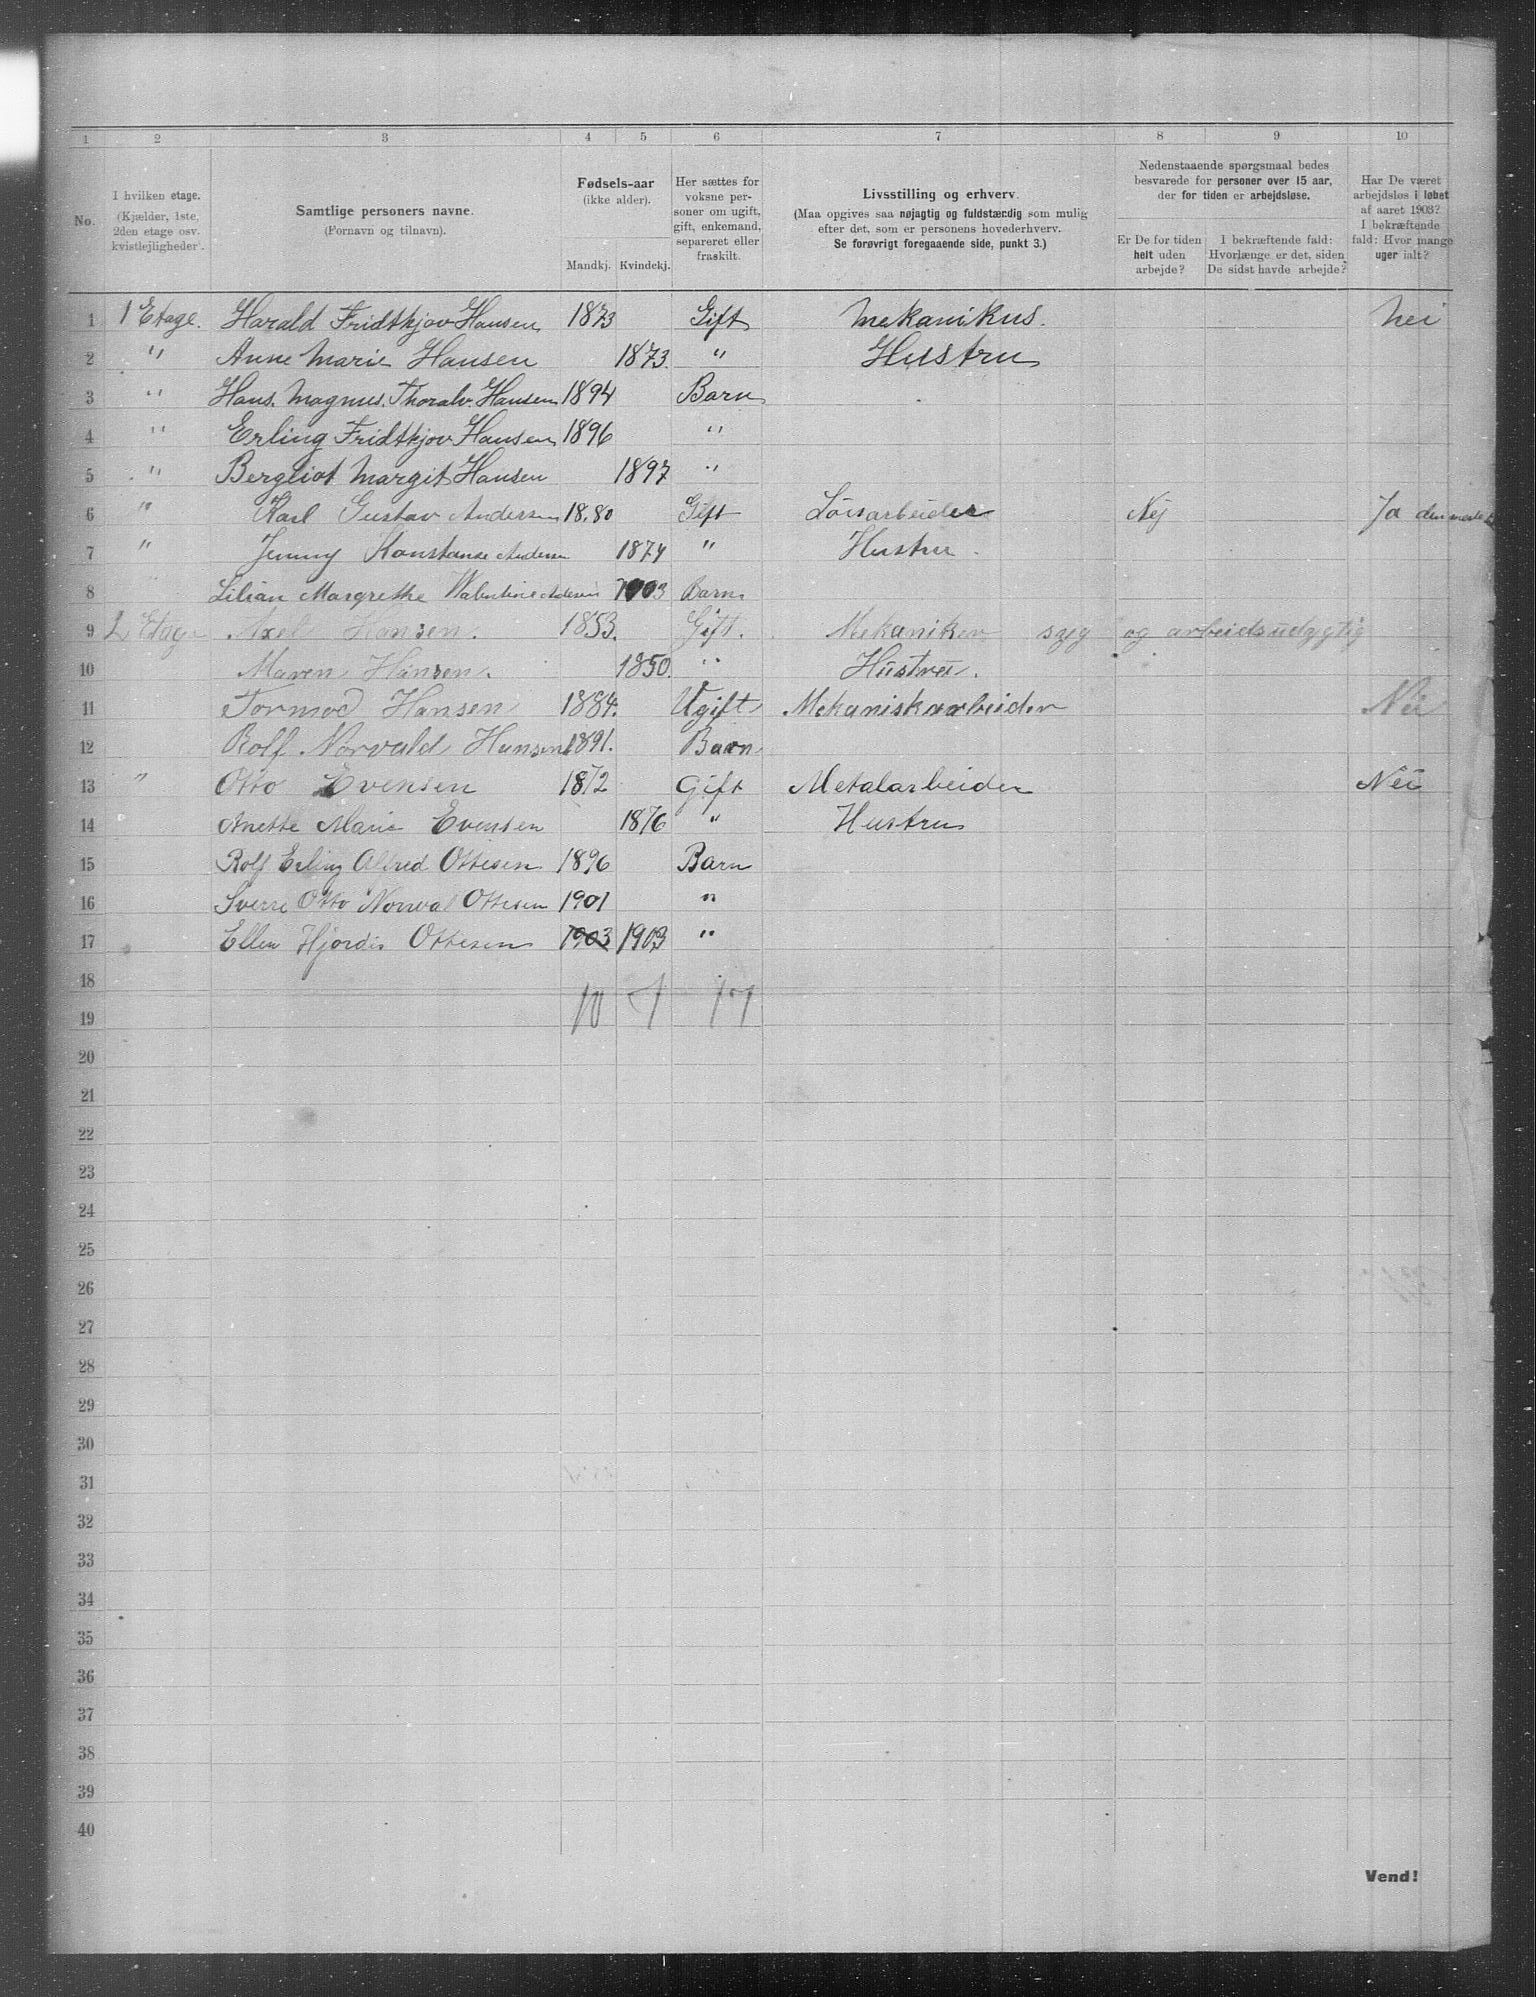 1 2 3 4 5 6 7 8 9 10
No.
I hvilken etage.
(Kjælder, 1ste,
2den etage osv.
kvistlejligheder.
Samtlige personers navne.
(Fornavn og tilnavn).
Fødsels-aar
(ikke alder).
Mandkj. Kvindekj.
Her sættes for
voksne per-
soner om ugift,
gift, enkemand,
separeret eller
fraskilt.
Livsstilling og erhverv.
(Maa opgives saa nøjagtig og fuldstærdig som mulig
efter det, som er personens hovederhverv.
Se forøvrigt foregaaende side, punkt 3.)
Nedenstaaende spørgsmaal bedes
besvarede for personer over 15 aar,
der for tiden er arbejdsløse.
Er De for tiden
helt uden
arbejde?
I bekræftende fald:
Hvorlænge er det, siden
De sidst havde arbejde?
Har De været
arbejdsløs i løbet
af aaret 1903?
I bekræftende
fald: Hvor mange
uger ialt?
1 1 Etage. Harald Fridtkjov Hansen 1873 Gift Mekanikus. Nei
2 " Anne Marie Hansen 1873. " Hustru
3 " Hans. Magnus. Thoralv. Hansen 1894 Barn
4 " Erling Fridtkjov Hansen 1896 "
5 " Bergliot Margit Hansen 1897 "
6 " Karl Gustav Andersen 18.80 Gift Løisarbeider Nej Ja den meste
7 " Jenny Konstanse Andersen 1874 " Hustru
8 Lilian Margrethe Walentine Andersen 1903 Barn
9 2 Etage Axel Hansen. 1853. Gift. Mekaniker syg og arbeidsudygtig
10 Maren Hansen. 1850. " Hustru.
11 Tormod Hansen 1884. Ugift Mekaniskarbeider Nei
12 Rolf Norvald Hansen 1891. Barn
13 " Otto Evensen 1872 Gift Metalarbeider Nei
14 Anette Marie Evensen 1876 " Hustru
15 Rolf Erling Alfred Ottesen 1896 Barn
16 Sverre Otto Norval Ottesen 1901 "
17 Ellen Hjordis Ottesen 1903 1903 "
18
10 7 17
19
20
21
22
23
24
25
26
27
28
29
30
31
32
33
34
35
36
37
38
39
40
Vend!